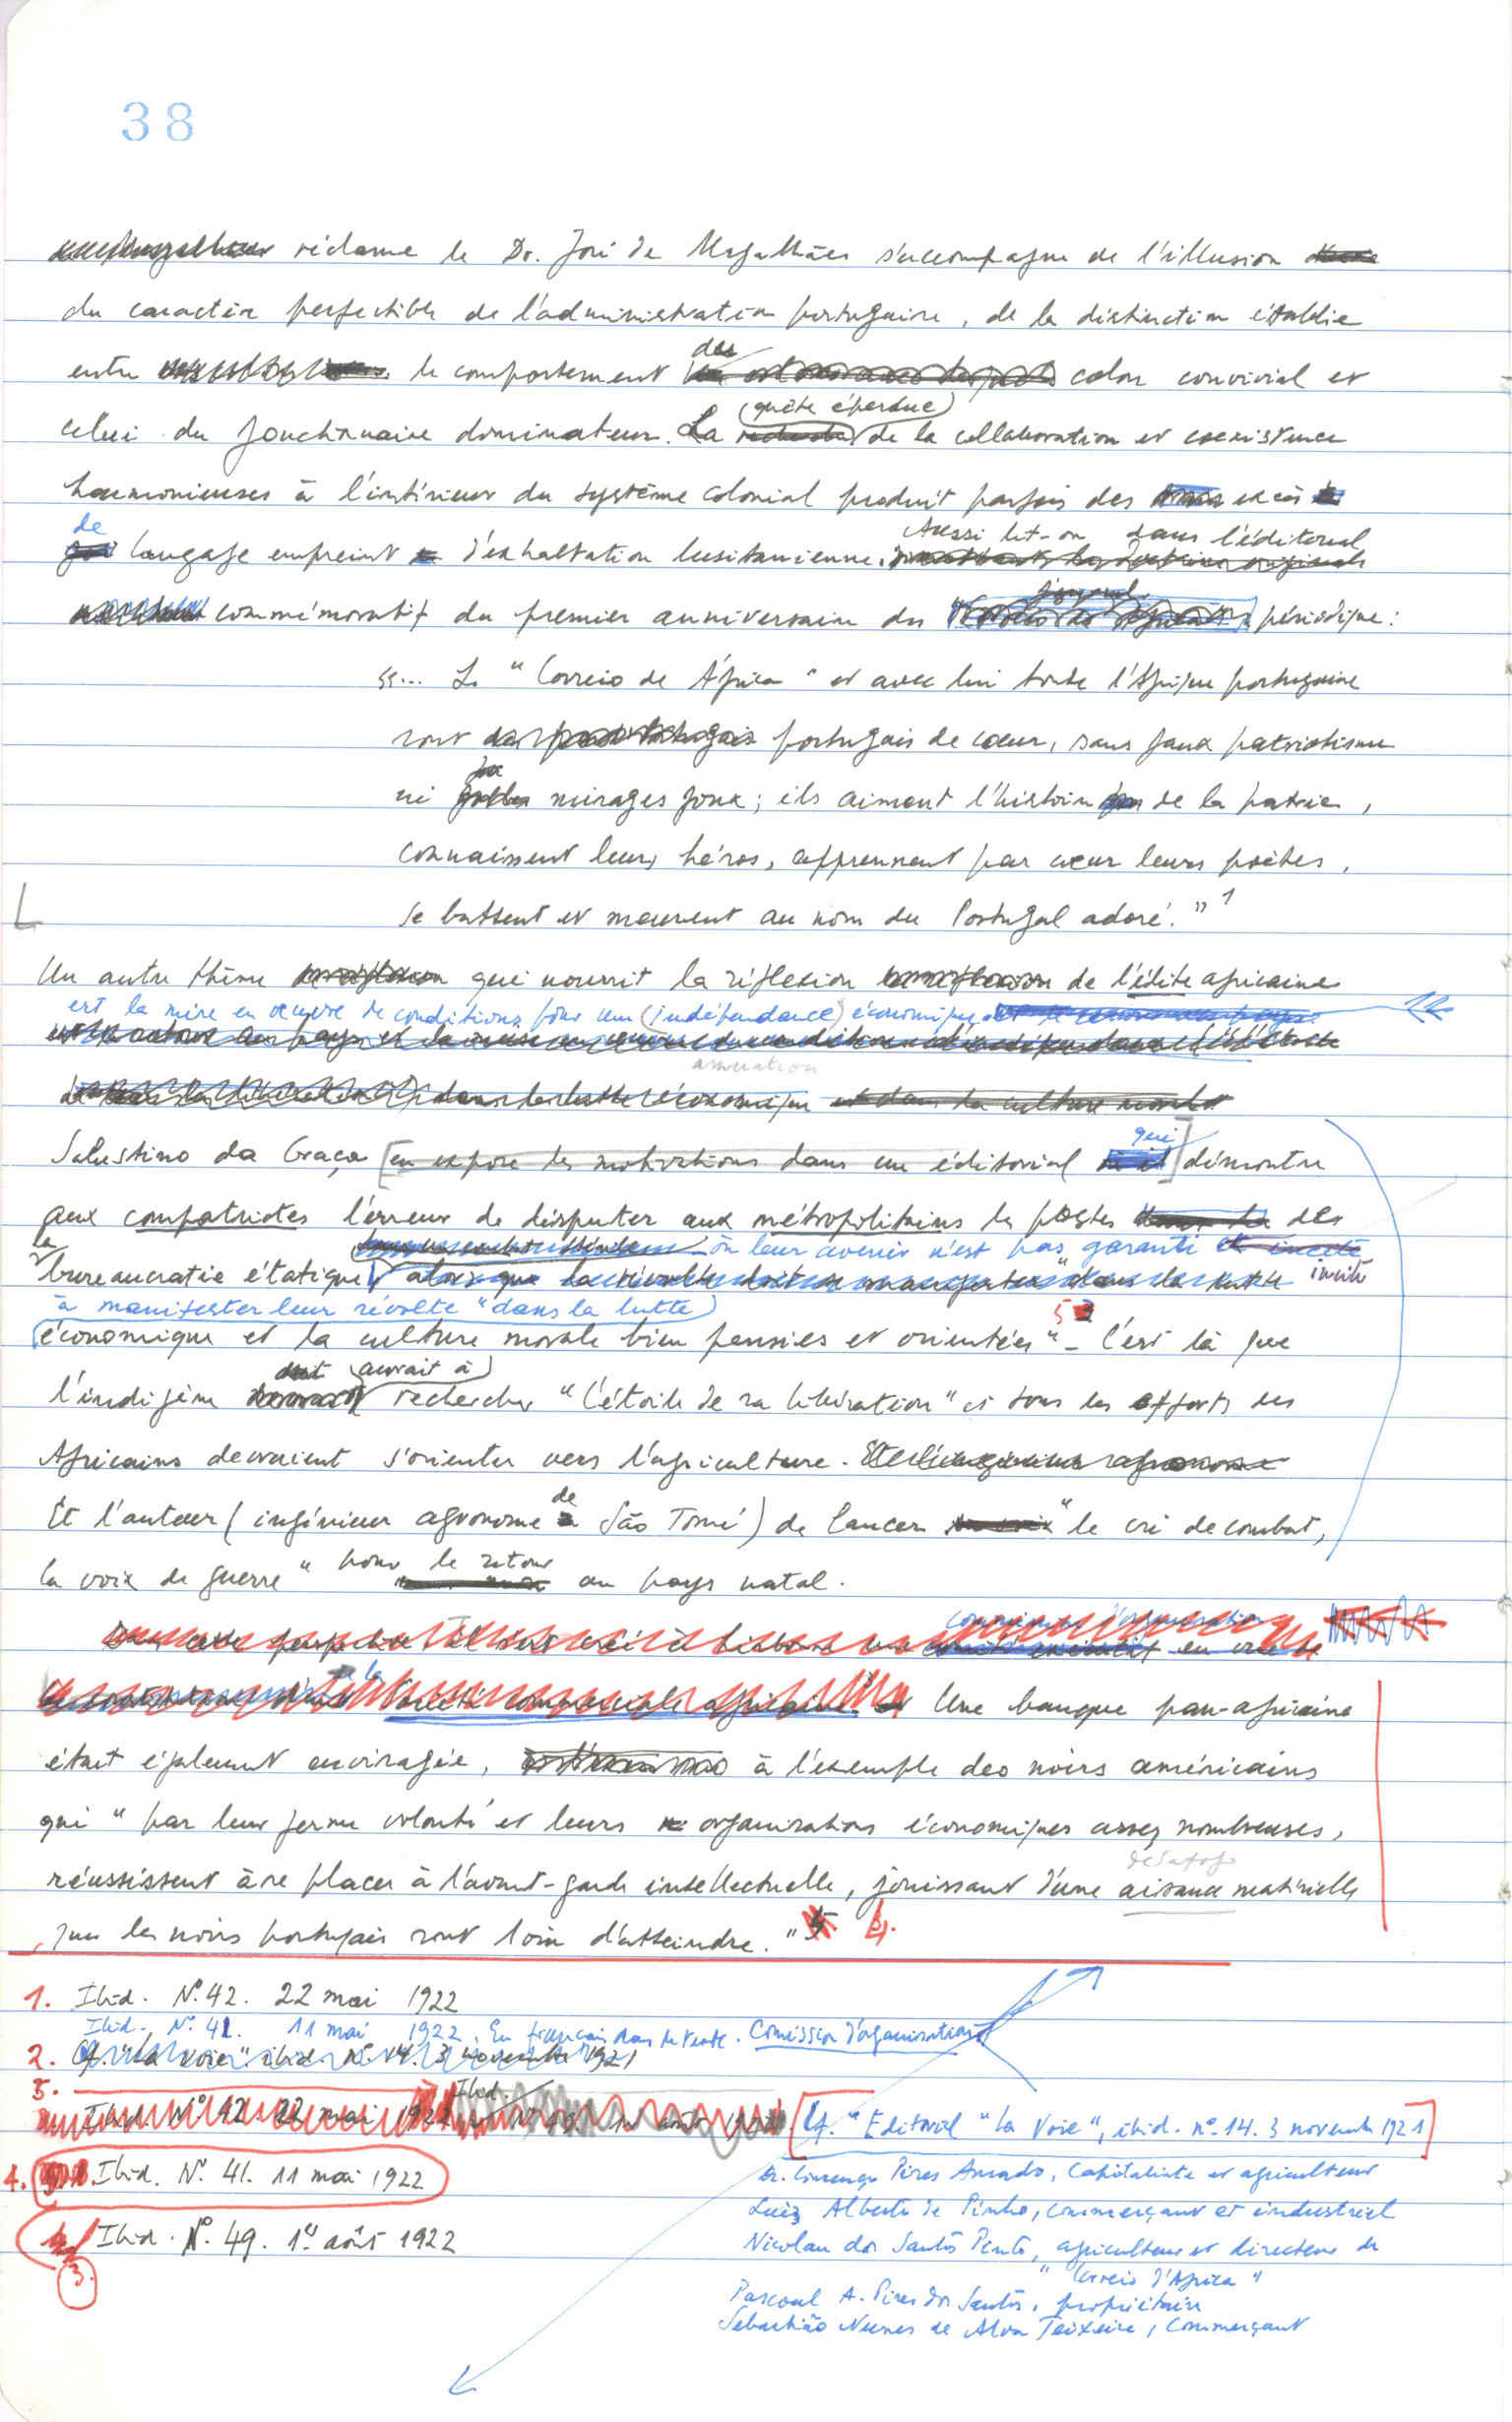 38
réclame le Dr. José de Magalhães s'accompagne de l'illusion
du caractère perfectible de l'administration portugaise, de la distinction établie
entre le comportement des colon convivial et
celui du fonctionnaire dominateur. La (quête éperdue) de la collaboration et coexistence
harmonieuses à l'intérieur du système colonial produit parfois des excès
de langage empreint d'exhaltation lusitanienne. Aussi lit-on dans l'éditorial
commémoratif du premier anniversaire du périodique :
"... Le "Correio de África" et avec lui toute l'Afrique portugaise
sont portugais de cœur, sans faux patriotisme
ni mirages faux ; ils aiment l'histoire de la patrie,
connaissent leurs héros, apprennent par cœur leurs poètes,
se battent et meurent au nom du Portugal adoré." 1
Un autre thème qui nourrit la réflexion de l'élite africaine
est la mise en œuvre de conditions pour une (indépendance) économique
association
dans la lutte économique et dans la culture morale
Salustino da Graça [en expose les motivations dans un éditorial qui] démontre
aux compatriotes l'erreur de disputer aux métropolitains les postes des
la bureaucratie étatique où leur avenir n'est pas garanti et incite
à manifester leur révolte "dans la lutte
économique et la culture morale bien pensées et orientées" 5 - C'est là que
l'indigène aurait à rechercher "l'étoile de sa libération" et tous les efforts des
Africains devraient s'orienter vers l'agriculture.
Et l'auteur (ingénieur agronome de São Tomé) de lancer "le cri de combat,
la voix de guerre" pour le retour au pays natal.
Société commerciale africaine. Une banque pan-africaine
était également envisagée, à l'exemple des noirs américains
qui "par leur ferme volonté et leurs organisations économiques assez nombreuses,
réussissent à se placer à l'avant-garde intellectuelle, jouissant d'une aisance matérielle
que les noirs portugais sont loin d'atteindre." 4.
1. Ibid. Nº. 42. 22 mai 1922
Ibid. Nº. 41. 11 mai 1922. En français dans le texte. Comission d'organisation
2. Cf. "La voie" ibid. nº. 14. 3 novembre 1921
3.
Ibid. Nº 42 22 mai 1922 Ibid. Nº 49 1er août 1922 [Cf. "Editorial "La Voie", ibid. nº. 14. 3 novembre 1921]
4. Ibid. Nº. 41. 11 mai 1922
Dr. Lourenço Pires Amado, Capitaliste et agriculteur
Luiz Alberto de Pinho, commerçant et industriel
Ibid. Nº. 49. 1er août 1922
3.
Nicolau dos Santos Pinto, agriculteur et directeur du
"Correio d'Africa"
Pascoal A. Pires dos Santos, propriétaire
Sebastião Nunes de Alva Teixeira, commerçant